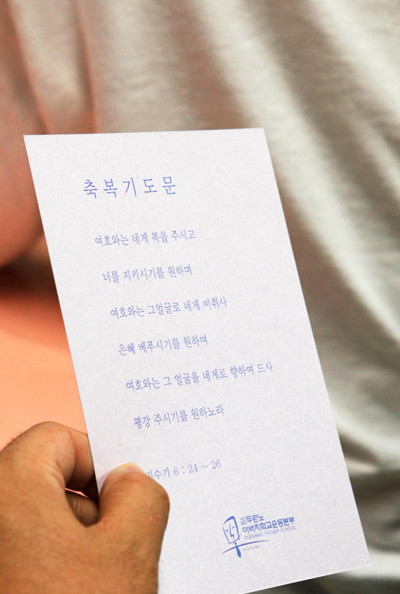 축복기도문
여호와는 네게 복을 주시고
너를 지키시기를 원하며
여호와는 그얼굴로 네게 비취사
은혜 베푸시기를 원하며
여호와는 그 얼굴을 네게로 향하여 드사
평강 주시기를 원하노라
6 : 24 ~ 26
두란노
아버지학교운동본부
DURANNO FATHER SCHOOL